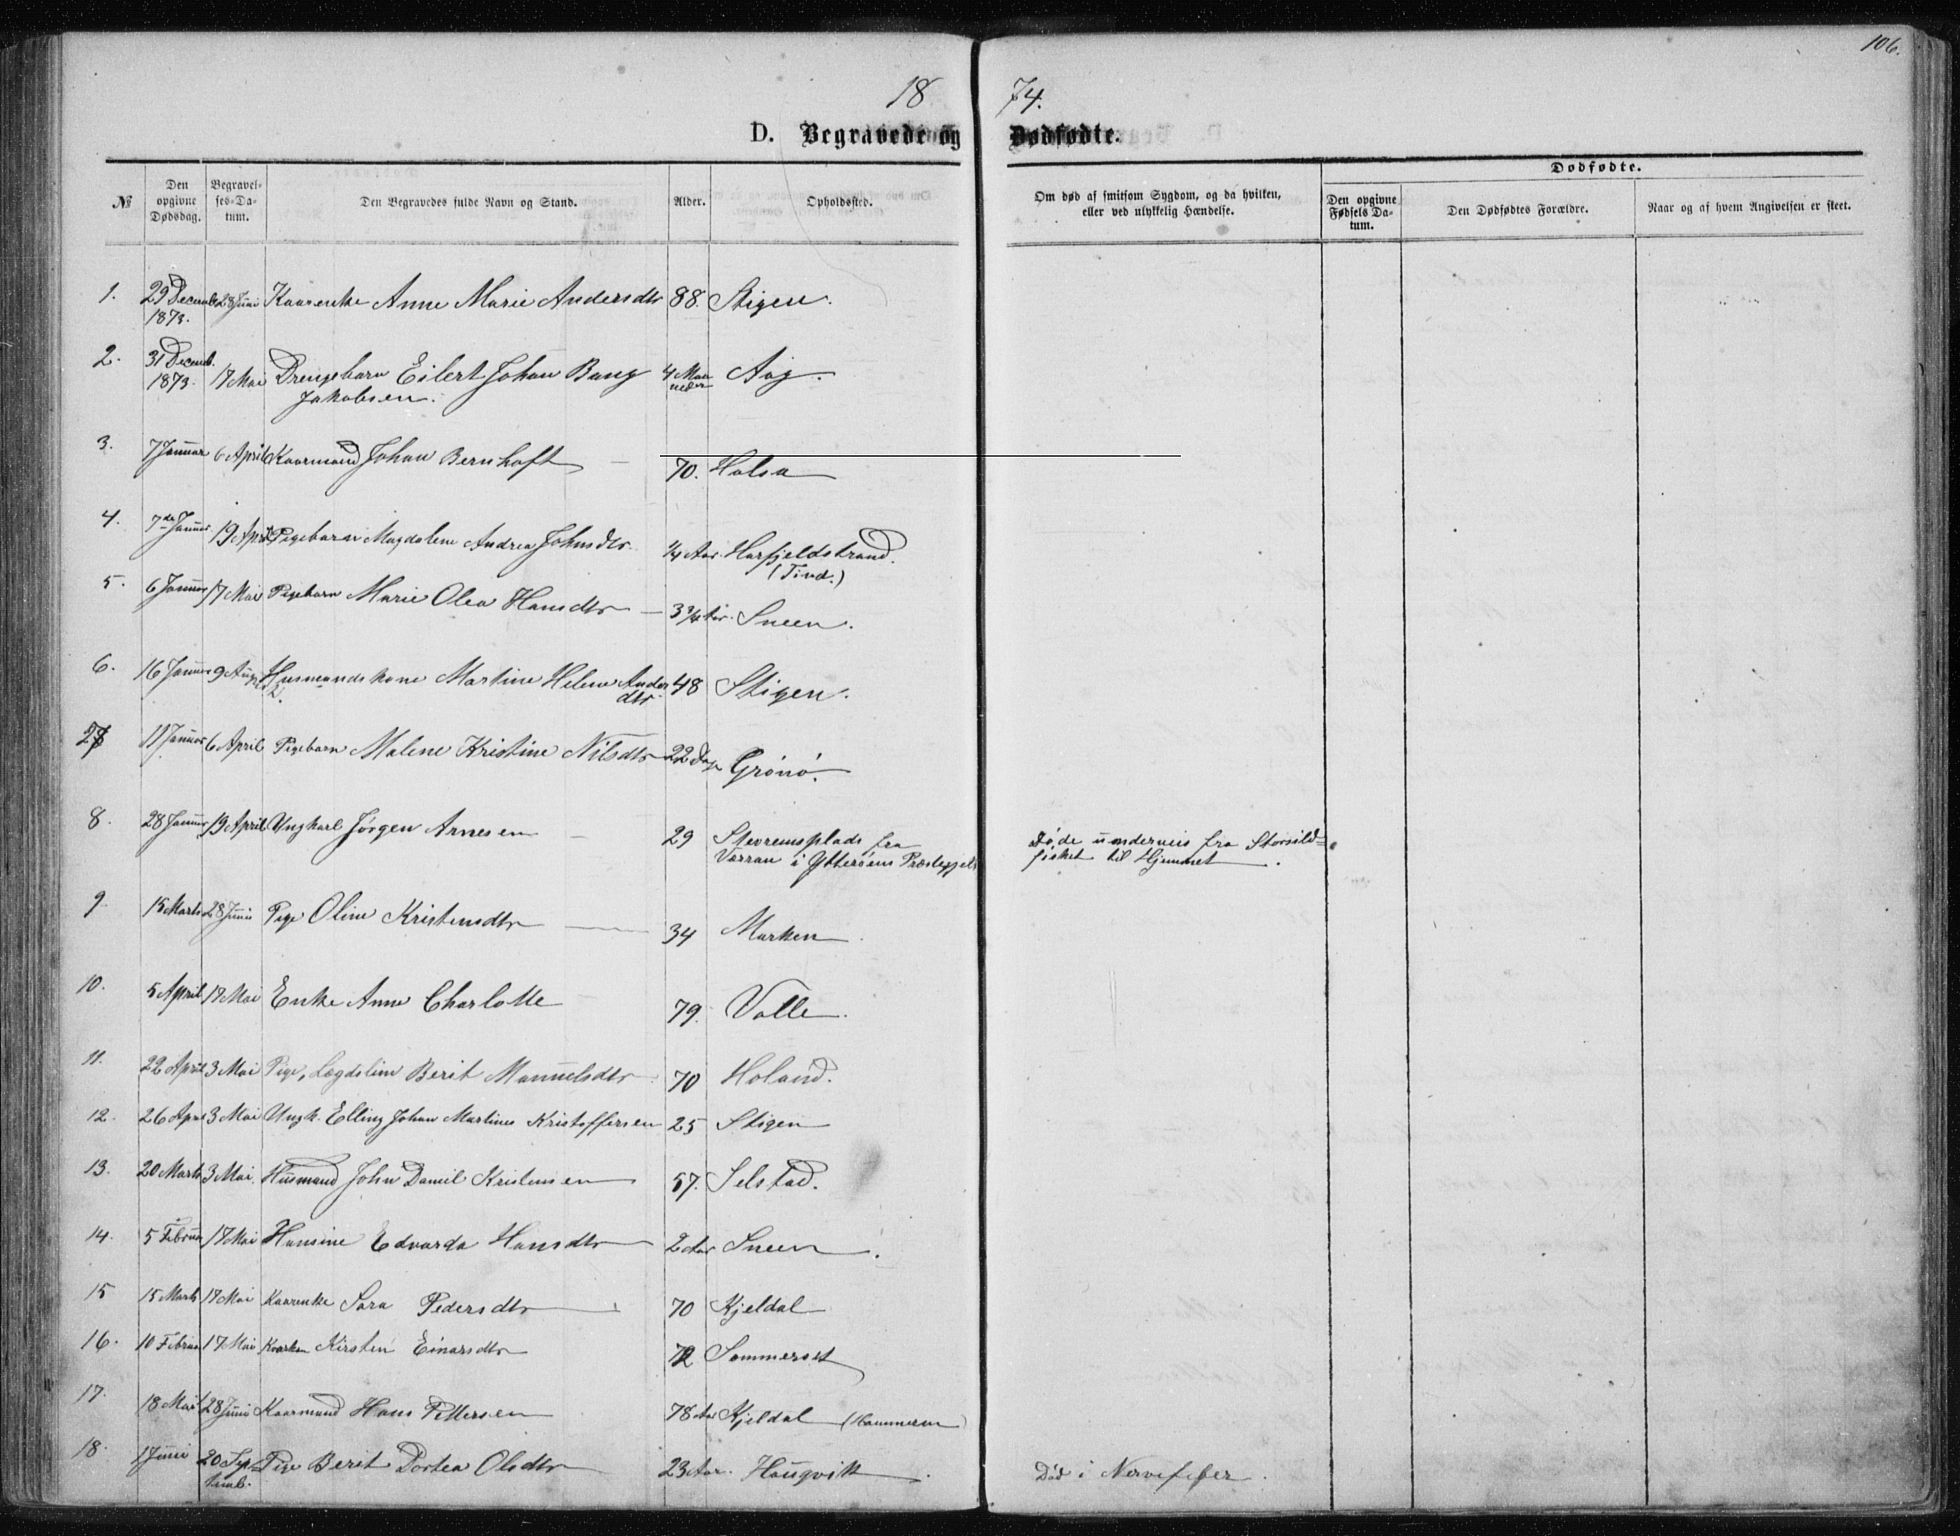 106.
18 74.
D. Begravede og Dødfødte.
№
Den opgivne Dødsdag.
Begravelses-Datum.
Den Begravedes fulde Navn og Stand.
Alder.
Opholdssted.
Om død af smitsom Sygdom, og da hvilken, eller ved ulykkelig Hændelse.
Dødfødte.
Den opgivne Fødsels Datum.
Den Dødfødtes Forældre.
Naar og af hvem Angivelsen er skeet.
1. 29 Decemb 1873. 28 Juni Kaarenke Anne Marie Andersdtr 88. Stigen.
2. 31 Decemb. 1873. 17 Mai Drengebarn Eilert Johan Bang Jakobsen. 4 Maaneder Aag.
3. 7 Januar 6 April Kaarmand Johan Bernhoft 70. Halsa
4. 7de Januar 19 April Pigebarn Magdalene Andrea Johnsdtr. 1/4 Aar Harfjeldstrand. (Tind.)
5. 6 Januar 17 Mai Pigebarn Marie Olea Hansdtr 3 3/4 Aar. Sneen.
6. 16 Januar 9 August Husmandskone Martine Helene Andersdtr. 48 Stigen.
7 11 Januar 6 April Pigebarn Malene Kristine Nilsdtr 22 Dage Grønø.
8. 28 Januar 19 April Ungkarl Jørgen Arnesen 29 Stevremsplads fra Værran i Ytterøens Præstegjeld Døde underveis fra Storsildfisket til Hjemmet.
9. 15 Marts 28 Juni Pige Oline Kristensdtr 34 Marken
10. 5 April 17 Mai Enke Anne Charlotte 79. Valle.
11. 22 April 3 Mai Pige, Lægdslem Berit Manuelsdtr. 70 Holand.
12. 26 Apr 3 Mai Ungk. Elling Johan Martines Kristoffersen 25 Stigen
13. 20 Marts 3 Mai. Husmand John Daniel Kristensen 57. Selstad.
14. 5 Februar 17 Mai Hansine Edvarda Hansdtr 2 Aar Sneen.
15 15 Marts 17 Mai Kaarenke Sara Pedersdtr 70 Kjeldal
16. 10 Februar 17 Mai Kirsten Einarsdtr 72 Sommerset
17. 18 Mai 28 Juni Kaarmand Hans Pettersen 78 Aar Kjeldal (Hammeren)
18. 1 Juni 20 Septemb. Pige Berit Dortea Olsdtr 23 Aar. Haugvik. Død i Nervefeber.